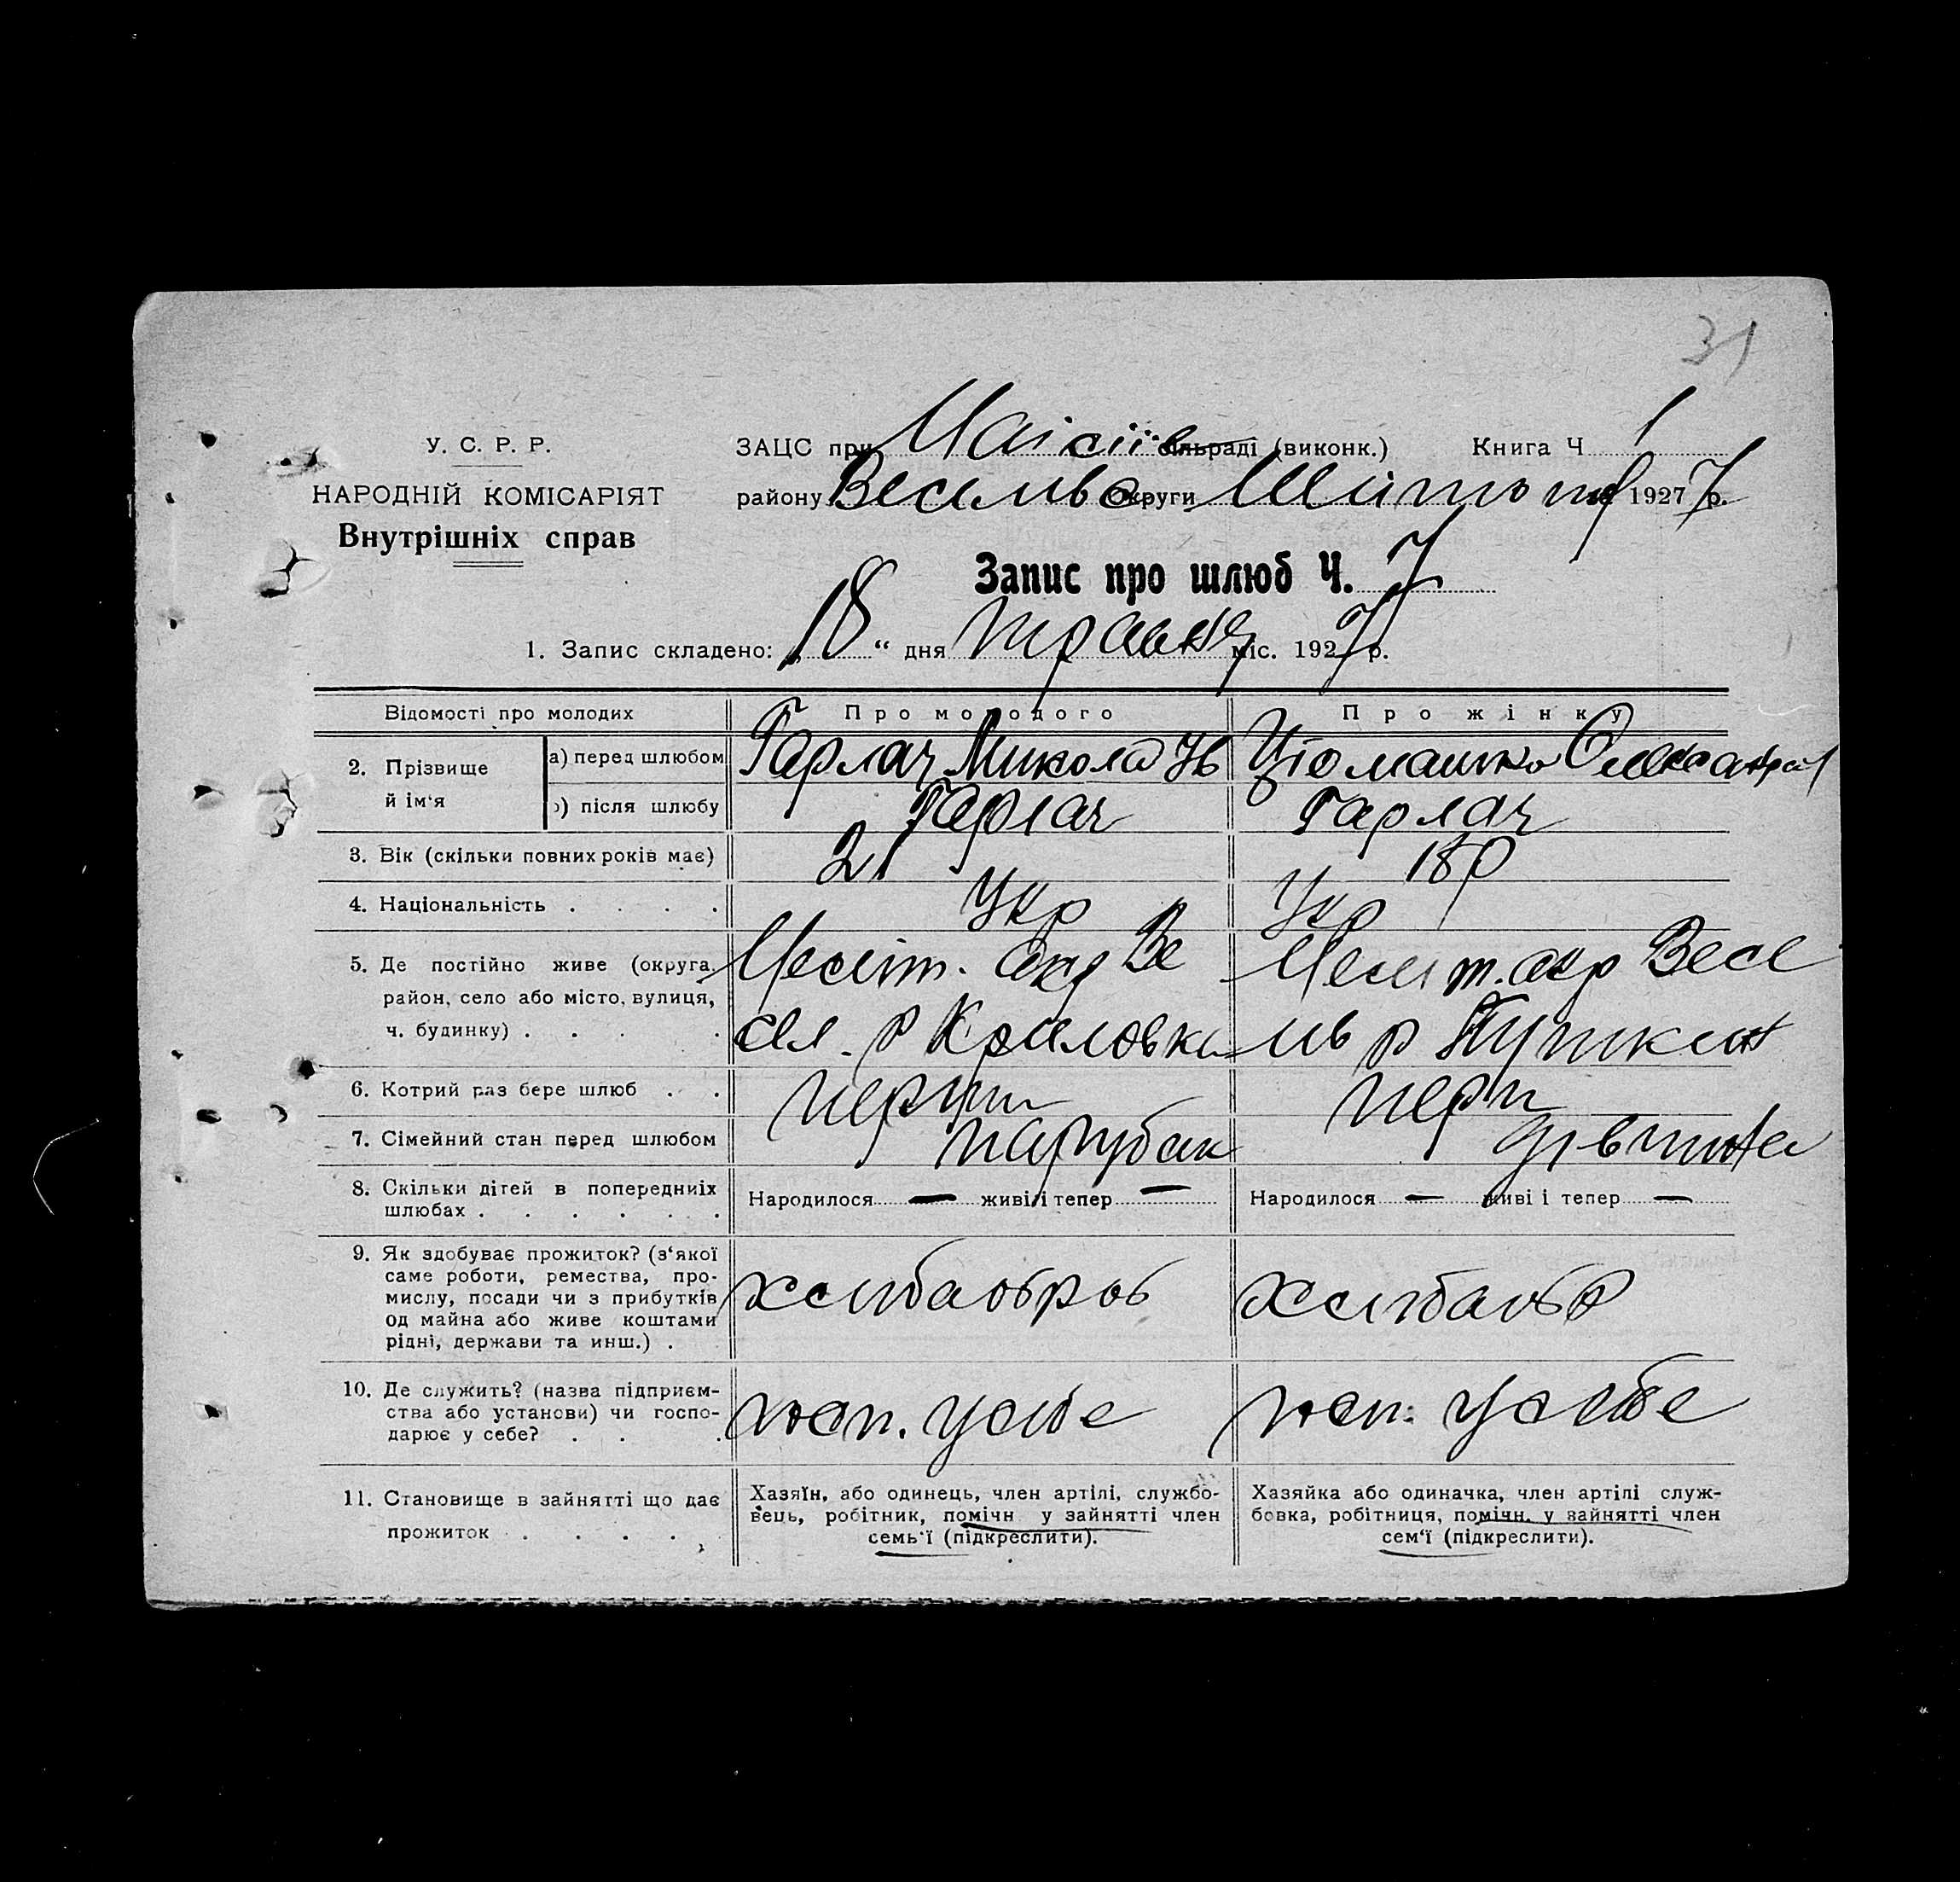 31
У. С. Р. Р.
НАРОДНІЙ КОМІСАРІЯТ
Внутрішніх справ
ЗАЦС при сільраді (виконк.) Книга Ч 1
району округи 1927 7 р.
Запис про шлюб Ч. 7
1. Запис складено: „18“ дня травня міс. 1927 р.
Відомості про молодих Про молодого Про жінку
2. Прізвище й ім‘я
а) перед шлюбом Гарлач Микола Ів Олександра
б) після шлюбу Гарлач Гарлач
3. Вік (скільки повних років має) 21 18 р
4. Національність . . . . Укр Укр
5. Де постійно живе (округа, окр Ве окр Весе
район, село або місто, вулиця, сел. р Криловка лів р Пушкін
ч. будинку) . . . .
6. Котрий раз бере шлюб . . перши перш
7. Сімейний стан перед шлюбом парубак дівчина
8. Скільки дітей в попередниіх Народилося — живі і тепер — Народилося — живі і тепер —
шлюбах . . . . . . .
9. Як здобуває прожиток? (з‘якої
саме роботи, ремества, про-
мислу, посади чи з прибутків хлібаоброб хлібаобр
од майна або живе коштами
рідні, держави та инш.) .
10. Де служить? (назва підприєм-
ства або установи) чи госпо- госп. усебе госп. усебе
дарює у себе? . . .
11. Становище в зайнятті що дає
прожиток . . . . .
Хазяїн, або одинець, член артілі, службо-
вець, робітник, помічн у зайнятті член
семь‘ї (підкреслити).
Хазяйка або одиначка, член артілі служ-
бовка, робітниця, помічн. у зайнятті член
сем‘ї (підкреслити).